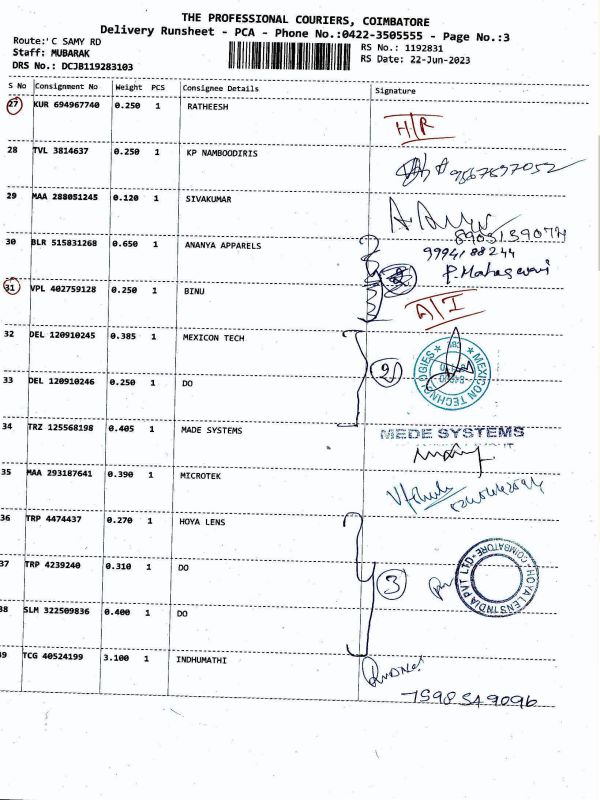 THE PROFESSIONAL COURIERS, COIMBATORE
Delivery Runsheet - PCA - Phone No.:0422-3505555 - Page No.:3
Route:'C SAMY RD
RS No.: 1192831
Staff: MUBARAK
RS Date: 22-Jun-2023
DRS No.: DCJB119283103
S No Consignment No Weight PCS Consignee Details Signature
27 KUR 694967740 0.250 1 RATHEESH
H/R
28 TVL 3814637 0.250 1 KP NAMBOODIRIS
9567697052
29 MAA 288051245 0.120 1 SIVAKUMAR
30 BLR 515831268 0.650 1 ANANYA APPARELS
9994188244
P. Maheswari
31 VPL 402759128 0.250 1 BINU
A/I
32 DEL 120910245 0.385 1 MEXICON TECH
MEXICON TECHNOLOGIES
2
33 DEL 120910246 0.250 1 DO
34 TRZ 125568198 0.405 1 MADE SYSTEMS
MEDE SYSTEMS
35 MAA 293187641 0.390 1 MICROTEK
36 TRP 4474437 0.270 1 HOYA LENS
37 TRP 4239240 0.310 1 DO
3
HOYA LENS INDIA PVT LTD COIMBATORE
38 SLM 322509836 0.400 1 DO
39 TCG 40524199 3.100 1 INDHUMATHI
7598549096